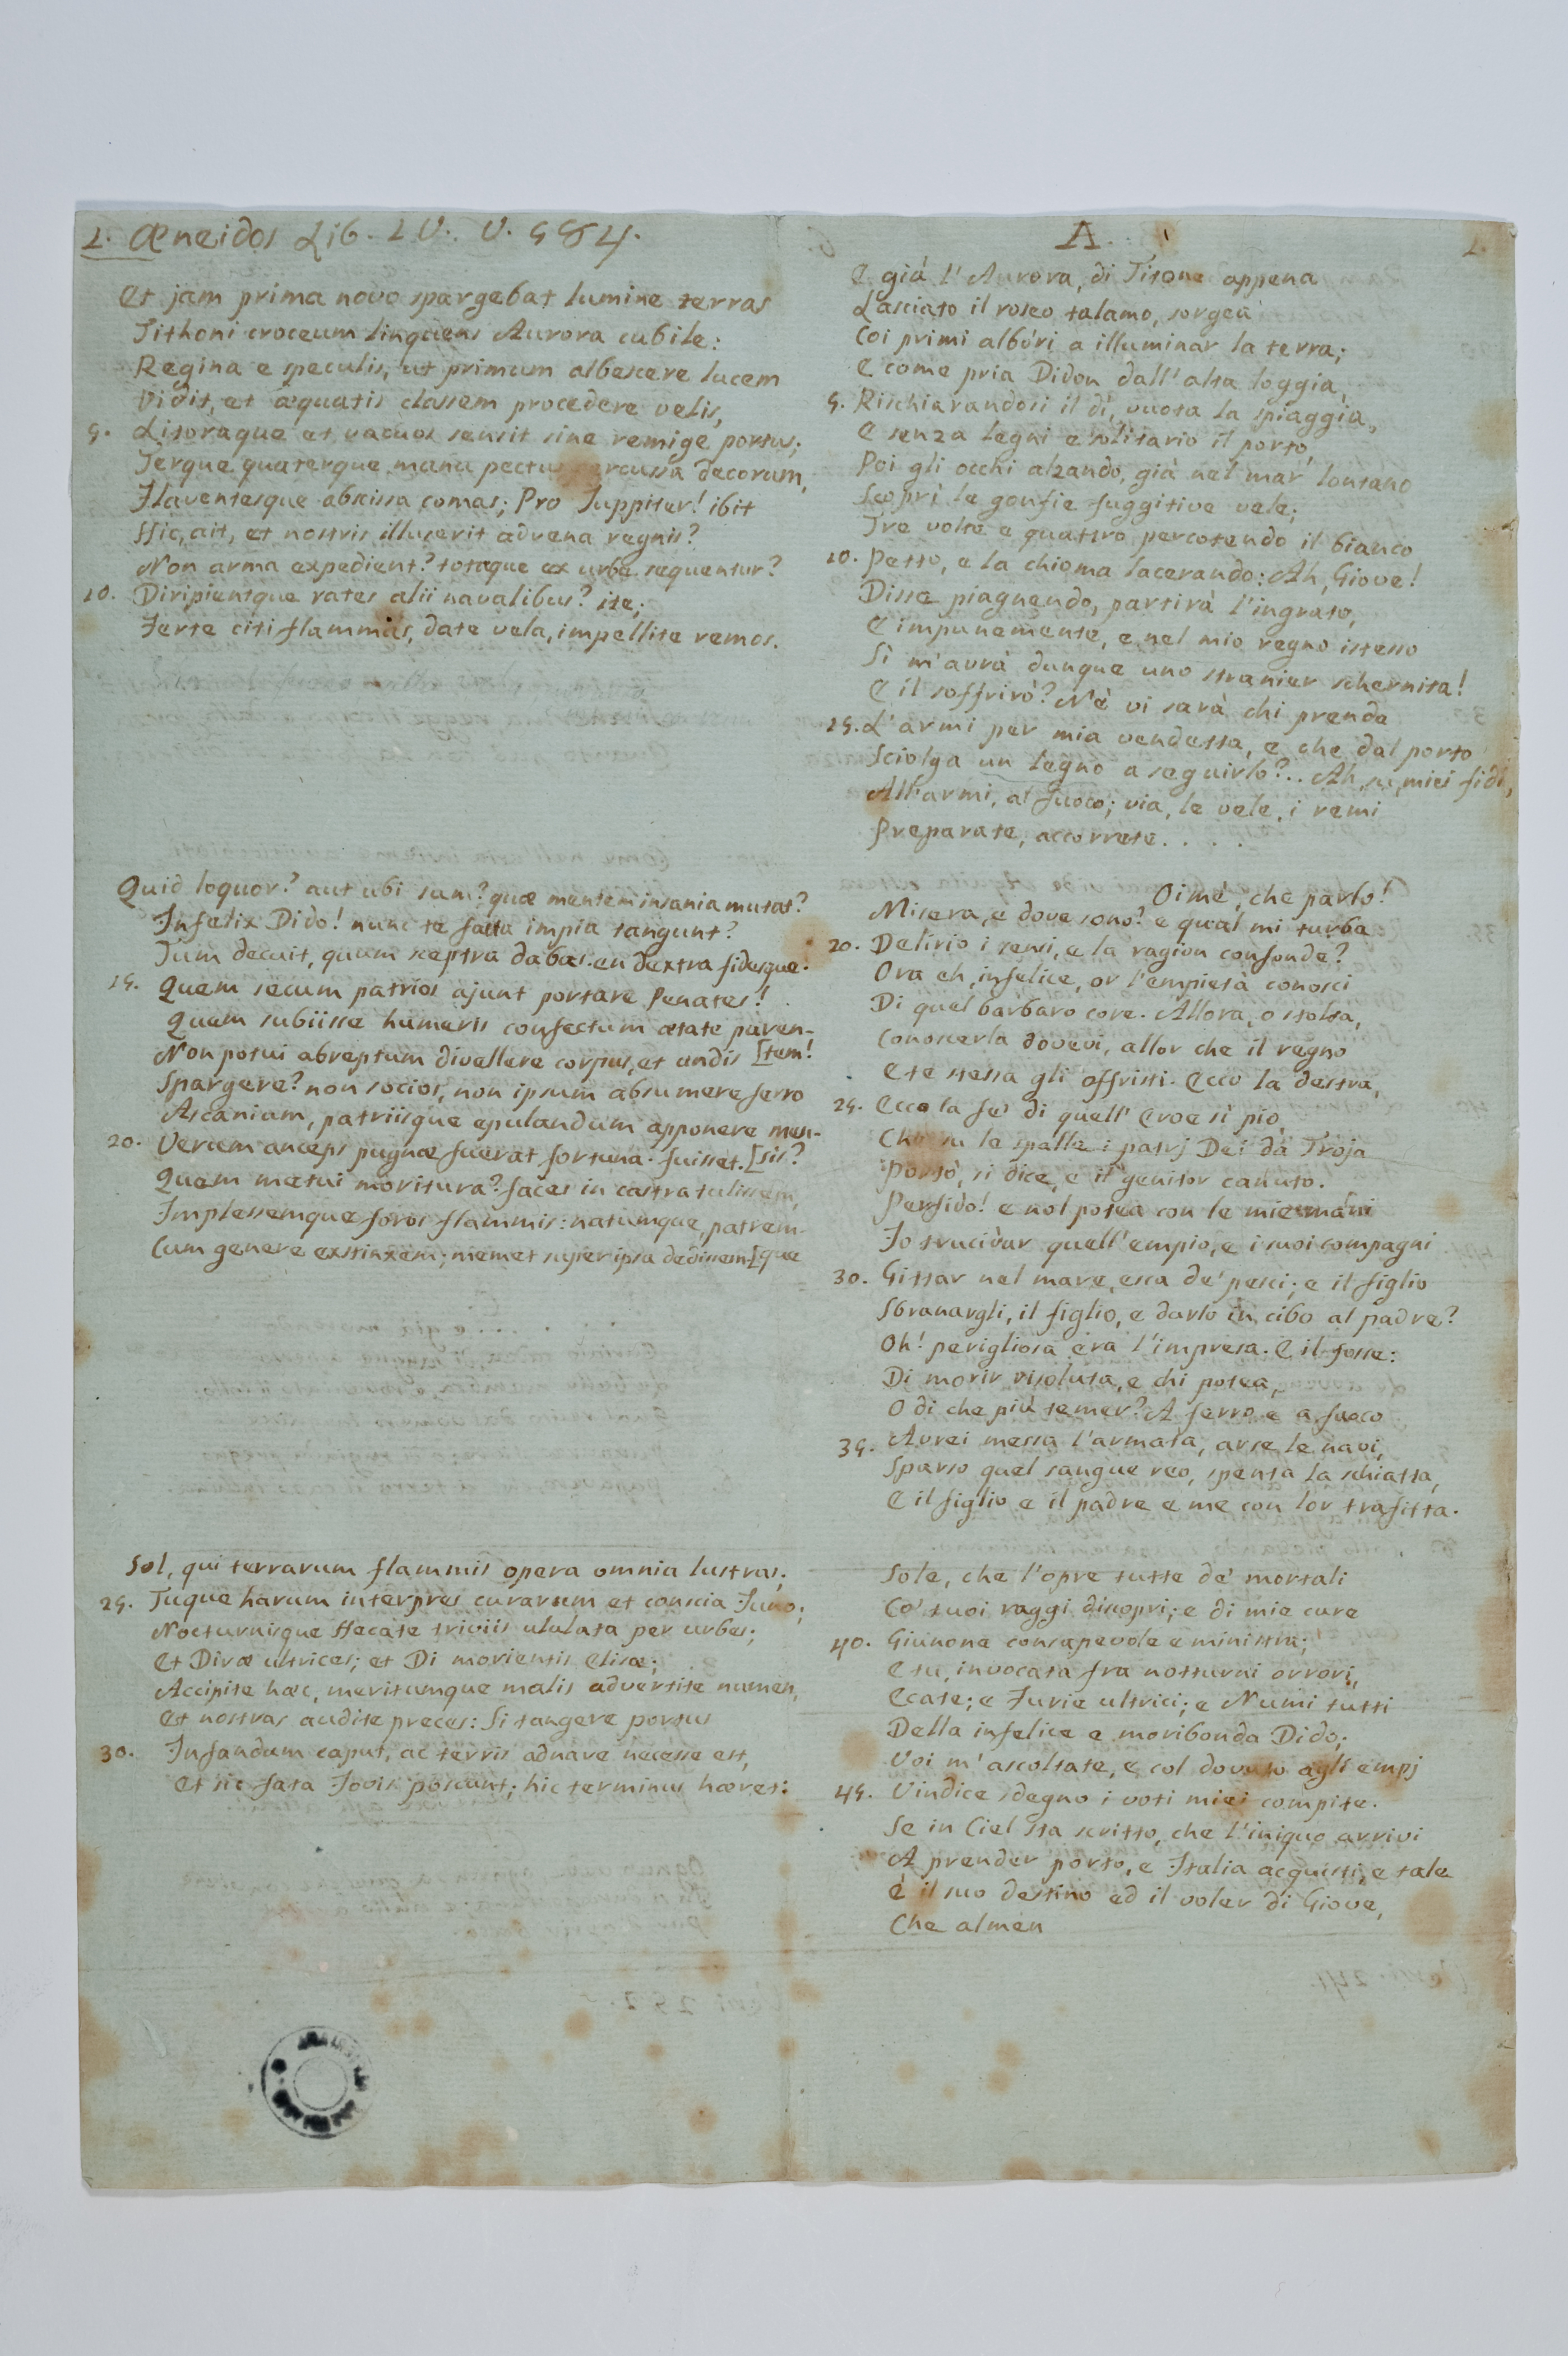 1. Æneidos Lib. IV. V. 584.
Et jam prima novo spargebat lumine terras
Tithoni croceum linquens Aurora cubile:
Regina e speculis, ut primum albescere lucem
Vidit, et æquatis classem procedere velis,
5. Litoraque et vacuos sensit sine remige portus;
Terque quaterque manu pectus percussa decorum,
Flaventesque abscissa comas; Pro Juppiter! ibit
Hic, ait, et nostris illuserit advena regnis?
Non arma expedient? totaque ex urbe sequentur?
10. Diripientque rates alii navalibus? ite;
Ferte citi flammas, date vela, impellite remos.
Quid loquor? aut ubi sum? quæ mentem insania mutat?
Infelix Dido! nunc te facta impia tangunt?
Tum decuit, quum sceptra dabas. en dextra fidesque.
15. Quem secum patrios ajunt portare Penates!
Quem subiisse humeris confectum ætate paren-
Non potui abreptum divellere corpus, et undis [tem!
Spargere? non socios, non ipsum absumere ferro
Ascanium, patriisque epulandum apponere men-
20. Verum anceps pugnæ fuerat fortuna. fuisset. [sis?
Quem metui moritura? faces in castra tulissem,
Implessemque foros flammis: natumque, patrem-
Cum genere exstinxem; memet super ipsa dedissem. [que
Sol, qui terrarum flammis opera omnia lustras;
25. Tuque harum interpres curarum et conscia Juno;
Nocturnisque Hecate triviis ululata per urbes;
Et Diræ ultrices; et Di morientis Elisæ;
Accipite hæc, meritumque malis advertite numen,
Et nostras audite preces: Si tangere portus
30. Infandum caput, ac terris adnare necesse est,
Et sic fata Jovis poscunt; hic terminus hæret:
A. 1.
E già l'Aurora, di Titone appena
Lasciato il roseo talamo, sorgea
Coi primi albóri a illuminar la terra;
E come pria Didon dall'alta loggia,
5. Rischiarandosi il dì, vuota la spiaggia,
E senza legni e solitario il porto,
Poi gli occhi alzando, già nel mar lontano
Scoprì le gonfie fuggitive vele;
Tre volte e quattro percotendo il bianco
10. Petto, e la chioma lacerando: Ah, Giove!
Disse piagnendo, partirà l'ingrato,
E impunemente, e nel mio regno istesso
Sì m'avrà dunque uno stranier schernita!
E il soffrirò? Nè vi sarà chi prenda
15. L'armi per mia vendetta, e che dal porto
Sciolga un legno a seguirlo?.. Ah, su, miei fidi,
All'armi, al fuoco; via, le vele, i remi
Preparate, accorrete. . . .
Oimè, che parlo!
Misera, e dove sono! e qual mi turba
20. Delirio i sensi, e la ragion confonde?
Ora eh, infelice, or l'empietà conosci
Di quel barbaro core. Allora, o stolta,
Conoscerla dovevi, allor che il regno
E te stessa gli offristi. Ecco la destra,
25. Ecco la fe' di quell'Eroe sì pio,
Che su le spalle i patrj Dei da Troja
Portò, si dice, e il genitor canuto.
Perfido! e nol potea con le mie mani
Io trucidar quell'empio, e i suoi compagni
30. Gittar nel mare, esca de' pesci; e il figlio
Sbranargli, il figlio, e darlo in cibo al padre?
Oh! perigliosa era l'impresa. E il fosse:
Di morir risoluta, e chi potea,
O di che più temer? A ferro e a fuoco
35. Avrei messa l'armata, arse le navi,
Sparso quel sangue reo, spenta la schiatta,
E il figlio e il padre e me con lor trafitta.
Sole, che l'opre tutte de' mortali
Co' tuoi raggi discopri; e di mie cure
40. Giunone consapevole e ministra;
E tu, invocata fra notturni orrori,
Ecate; e Furie ultrici; e Numi tutti
Della infelice e moribonda Dido;
Voi m'ascoltate, e col dovuto agli empj
45. Vindice sdegno i voti miei compite.
Se in Ciel sta scritto, che l'iniquo arrivi
A prender porto, e Italia acquisti, e tale
È il suo destino ed il voler di Giove,
Che almen